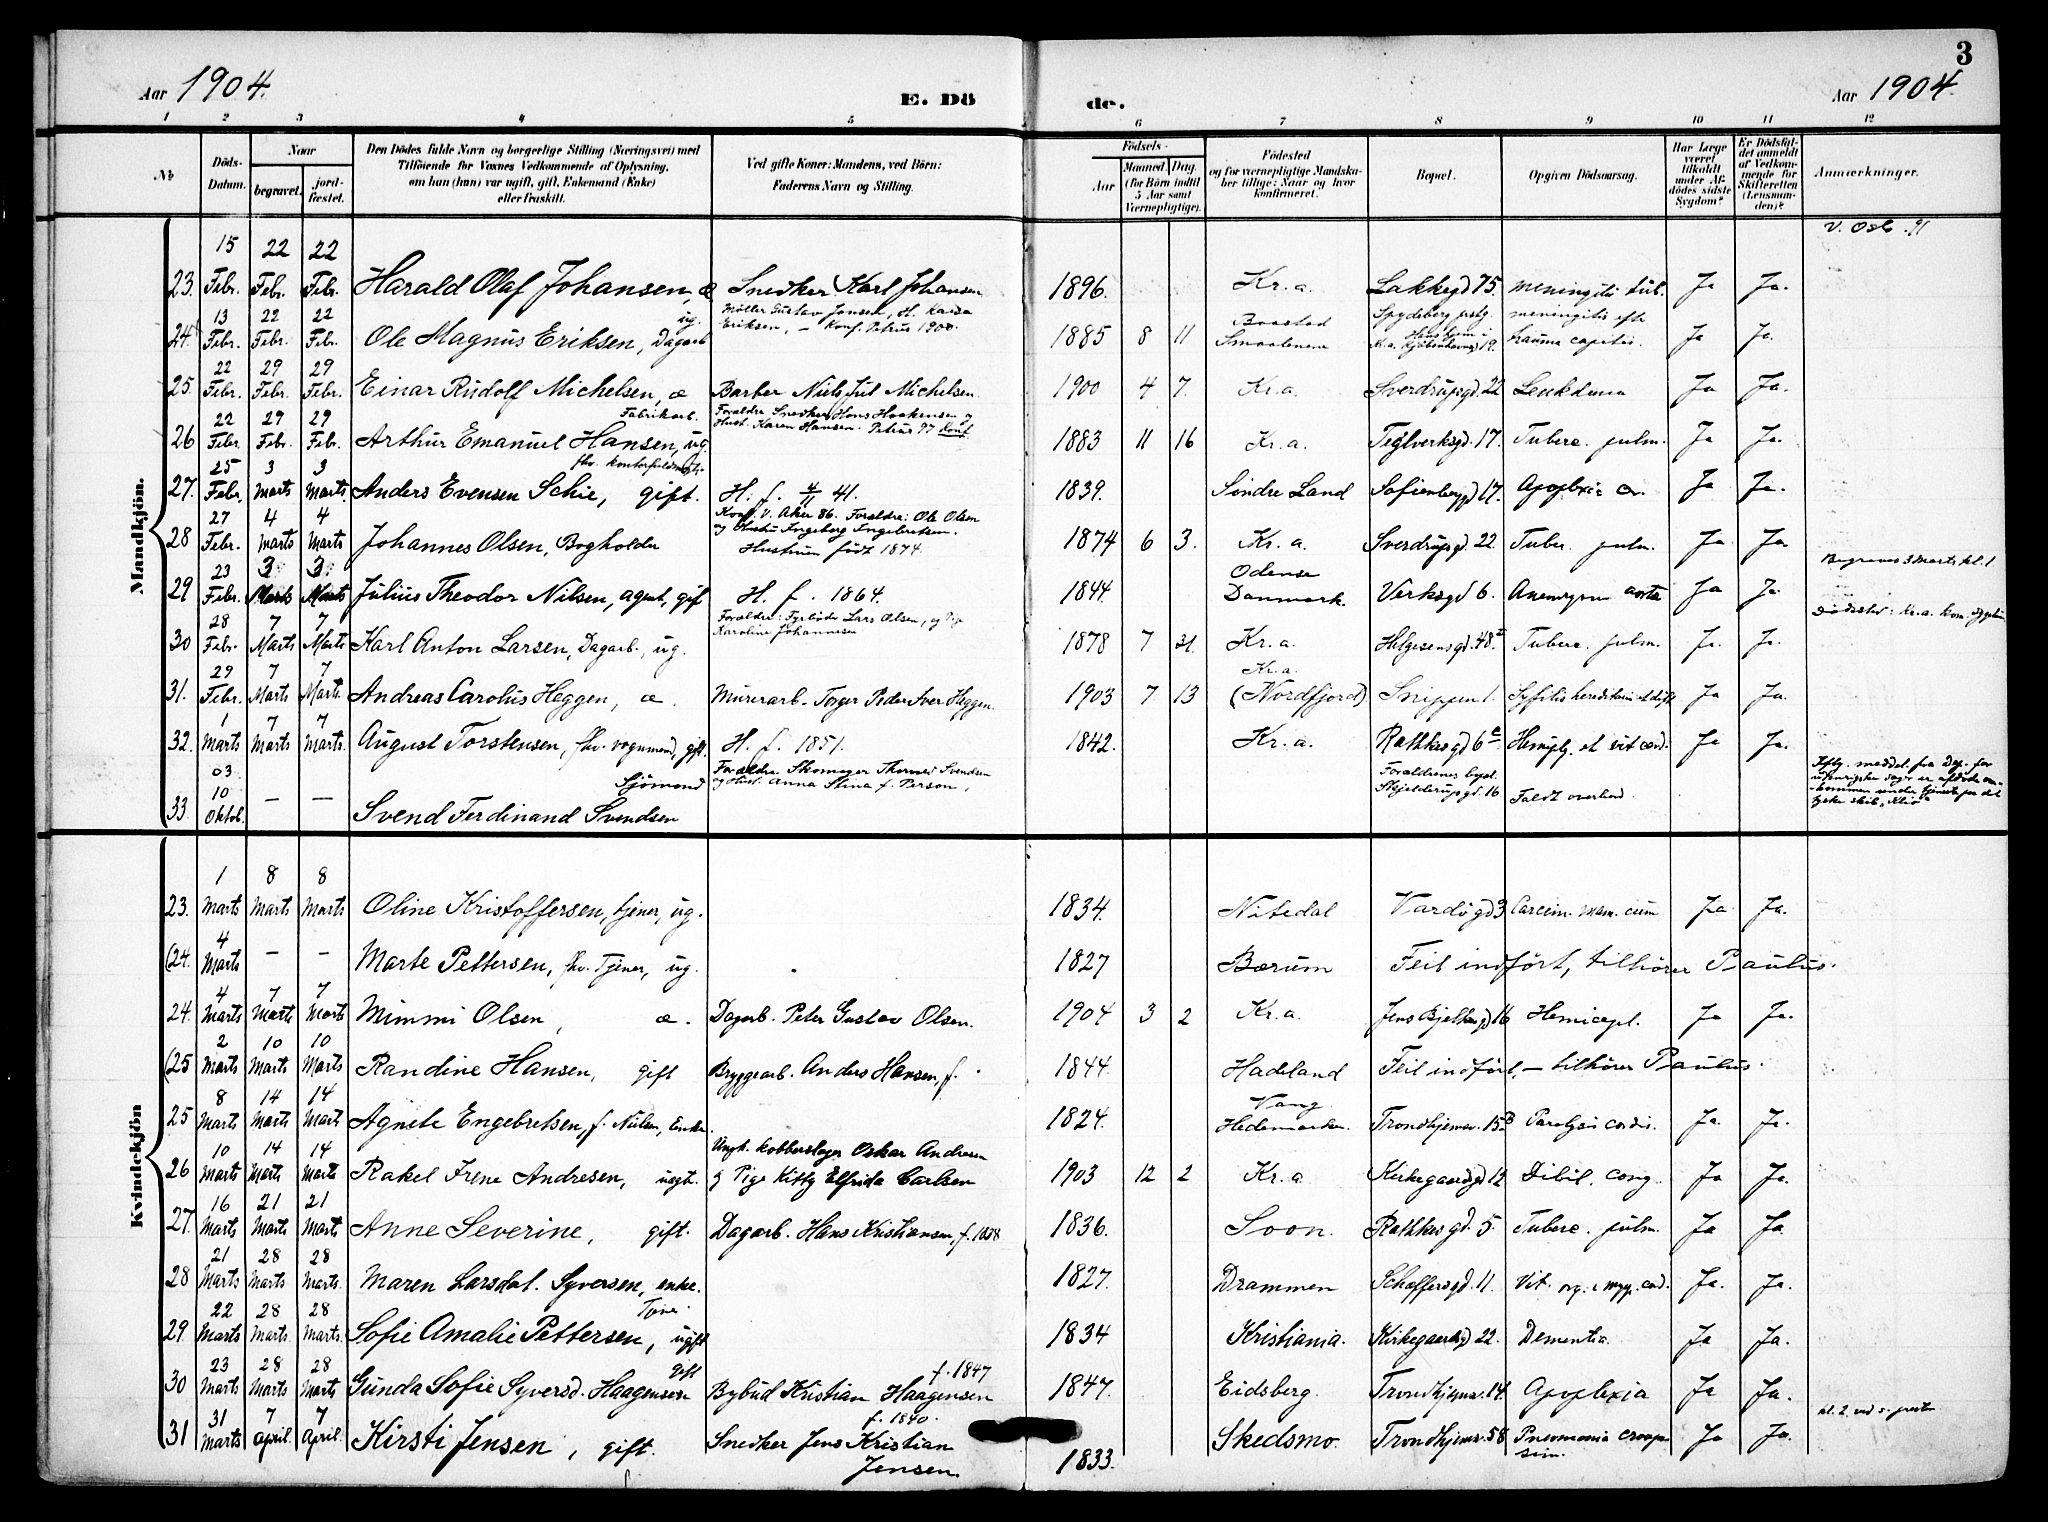 3
Aar 1904.
E. Dö
de.
Aar 1904.
1 2 3 4 5 6 7 8 9 10 11 12
No
Döds-Datum.
Naar
begravet.
jord-fæstet.
Den Dödes fulde Navn og borgerlige Stilling (Næringsvei) med
Tilföiende for Voxnes Vedkommende af Oplysning,
om han (hun) var ugift, gift, Enkemand (Enke)
eller fraskilt.
Ved gifte Koner: Mandens, ved Börn:
Faderens Navn og Stilling.
Födsels-
Aar
Maaned Dag.
(for Börn indtil
5 Aar samt
Værnepligtige).
Födested
og for værnepligtige Mandska-
ber tillige: Naar og hvor
konfirmeret.
Bopæl.
Opgiven Dödsaarsag.
Har Læge
været
tilkaldt
under Af-
dödes sidste
Sygdom?
Er Dödsfal-
det anmeldt
af Vedkom-
mende for
Skifteretten
(Lensman-
den)?
Anmærkninger.
Mandkjön.
23. 15 Febr. 22 Febr. 22 Febr. Harald Olaf Johansen, æ Snedker Karl Johansen 1896. Kr. a. Lakkegd 75. meningitis tub. Ja Ja.
24. 13 Febr. 22 Febr. 22 Febr. Ole Magnus Eriksen, Dagarb ug. Möller Gustav Jonsen, H. Kaisa
Eriksen, – Konf. Petrus 1900. 1885 8 11 Smaalenene Spydeberg prstg. Kr.a. 19. meningitis efter
trauma capitis. Ja Ja.
25. 22 Febr. 29 Febr. 29 Febr. Einar Rudolf Michelsen, æ Barber Niels Jul Michelsen. 1900 4 7. Kr. a. Sverdrupsgd 22 Leukæmia Ja Ja.
26 22 Febr. 29 Febr. 29 Febr. Arthur Emanuel Hansen, ug. Fabrikarb. Forældre Snedker Hans Haakensen og
Hust. Karen Hansen. Petrus 97 Konf 1883 11 16 Kr. a. Teglverksgd. 17. Tuberc. pulm. Ja Ja.
27. 25 Febr. 3 Marts 3 Marts. Anders Evensen Schie, gift. fhv. H. f. 4/11 41. 1839. Söndre Land Sofienberggd 17. Apoplexia Ja Ja.
28 27 Febr. 4 Marts 4 Marts Johannes Olsen, Bogholder Konf. V. Aker 86. Forældre: Ole Olsen
og Hustru Ingeborg Ingebretsen.
Hustruen födt 1874. 1874 6 3. Kr. a. Sverdrupsgd. 22. Tuber. pulm. Ja Ja.
29 23 Febr. 3 Marts 3 Marts Julius Theodor Nilsen, agent, gift H. f. 1864. 1844. Odense
Danmark. Verksgd 6. Anevrysm aorta Ja Ja. Begraves 3 marts kl. 1
30 28 Febr. 7 Marts 7 Marts Karl Anton Larsen, Dagarb., ug. Forældre: Fyrböder Lars Olsen, og Pige
Karoline Johannesen 1878 7 31. Kr. a. Helgesensgd. 48. Tuberc. pulm. Ja. Ja. Dödssted: Kr.a. kom. sygehus.
31. 29 Febr. 7 Marts 7 Marts. Andreas Carolus Heggen, æ. Murerarb. Torger Peder Iver Heggen. 1903 7 13 Kr. a.
(Nordfjord) Snippen 1. Syfilis hereditaria Ja Ja.
32. 1 Marts 7 Marts 7 Marts. August Torstensen, fhv. vognmand, gift. H. f. 1851. 1842. Kr. a. Rathkesgd 6 Hemipleg. et vit. cord. Ja Ja.
33. 03. 10 Oktob. – – Svend Ferdinand Svendsen Sjömand Forældre. Skomager Thorvald Svendsen
og Hust. Anna Stina f. Person. Forældrenes bopæl.
Skjelderupsgd. 16 Faldt overbord. Ifölge meddel. fra Dep. for
utenrigske sager er afdöde om-
kommen under tjeneste paa det
tyske skib "Klio"
Kvindekjön
23. 1 Marts 8 Marts 8 Marts Oline Kristoffersen, tjener, ug. 1834. Nitedal Vardögd 3 Carcin. mam. Ja Ja.
(24. 4 Marts – – Marte Pettersen, fhv. Tjener, ug. 1827 Bærum Feil indfört, tilhörer Paulus.
24. 4 Marts 7 Marts 7 Marts Mimmi Olsen, æ. Dagarb. Peter Gustav Olsen. 1904 3 2 Kr. a. Jens Bjelkesgd 16 Hemicepl. Ja Ja.
(25 2 Marts 10 Marts 10 Marts Randine Hansen, gift Bryggearb. Anders Hansen, f. 1844. Hadeland Feil indfört, – tilhörer Paulus.
25 8 Marts 14 Marts 14 Marts Agnete Engebretsen, f. Nilsen, Enke. 1824. Vang
Hedemarken. Trondhjemsv. 15B Paralysis cordis. Ja. Ja.
26 10 Marts 14 Marts 14 Marts Rakel Irene Andresen, uegt. Ungk. kobberslager Oskar Andresen
og Pige Kitty Elfrida Carlsen 1903 12 2 Kr. a Kirkegaardsgd 12 Debil. cong. Ja Ja.
27. 16 Marts 21 Marts 21 Marts Anne Severine, gift. Dagarb. Hans Kristiansen, f. 1838 1836. Soon. Rathkesgd. 5. Tuberc. pulm. Ja Ja
28 21 Marts 28 Marts 28 Marts. Maren Larsdat. Syversen, enke. 1827. Drammen Schæffersgd. 11. Vit. org. cord. Ja. Ja.
29. 22 Marts 28 Marts. 28 Marts. Sofie Amalie Pettersen, ugift Tjener. 1834 Kristiania. Kirkegaardsgd 22. Dementia. Ja Ja.
30 23 Marts 28 Marts 28 Marts Gunda Sofie Syversd. Haagensen gift Bybud Kristian Haagensen f. 1847 1847. Eidsberg. Trondhjemsv. 14. Apoplexia Ja Ja.
31 31 Marts 7 april. 7 April. Kirsti Jensen, gift. Snedker Jens Kristian
Jensen. f. 1840. 1833. Skedsmo. Trondhjemsv. 58 Pneumonia Ja Ja. kl. 2 ved s. prest